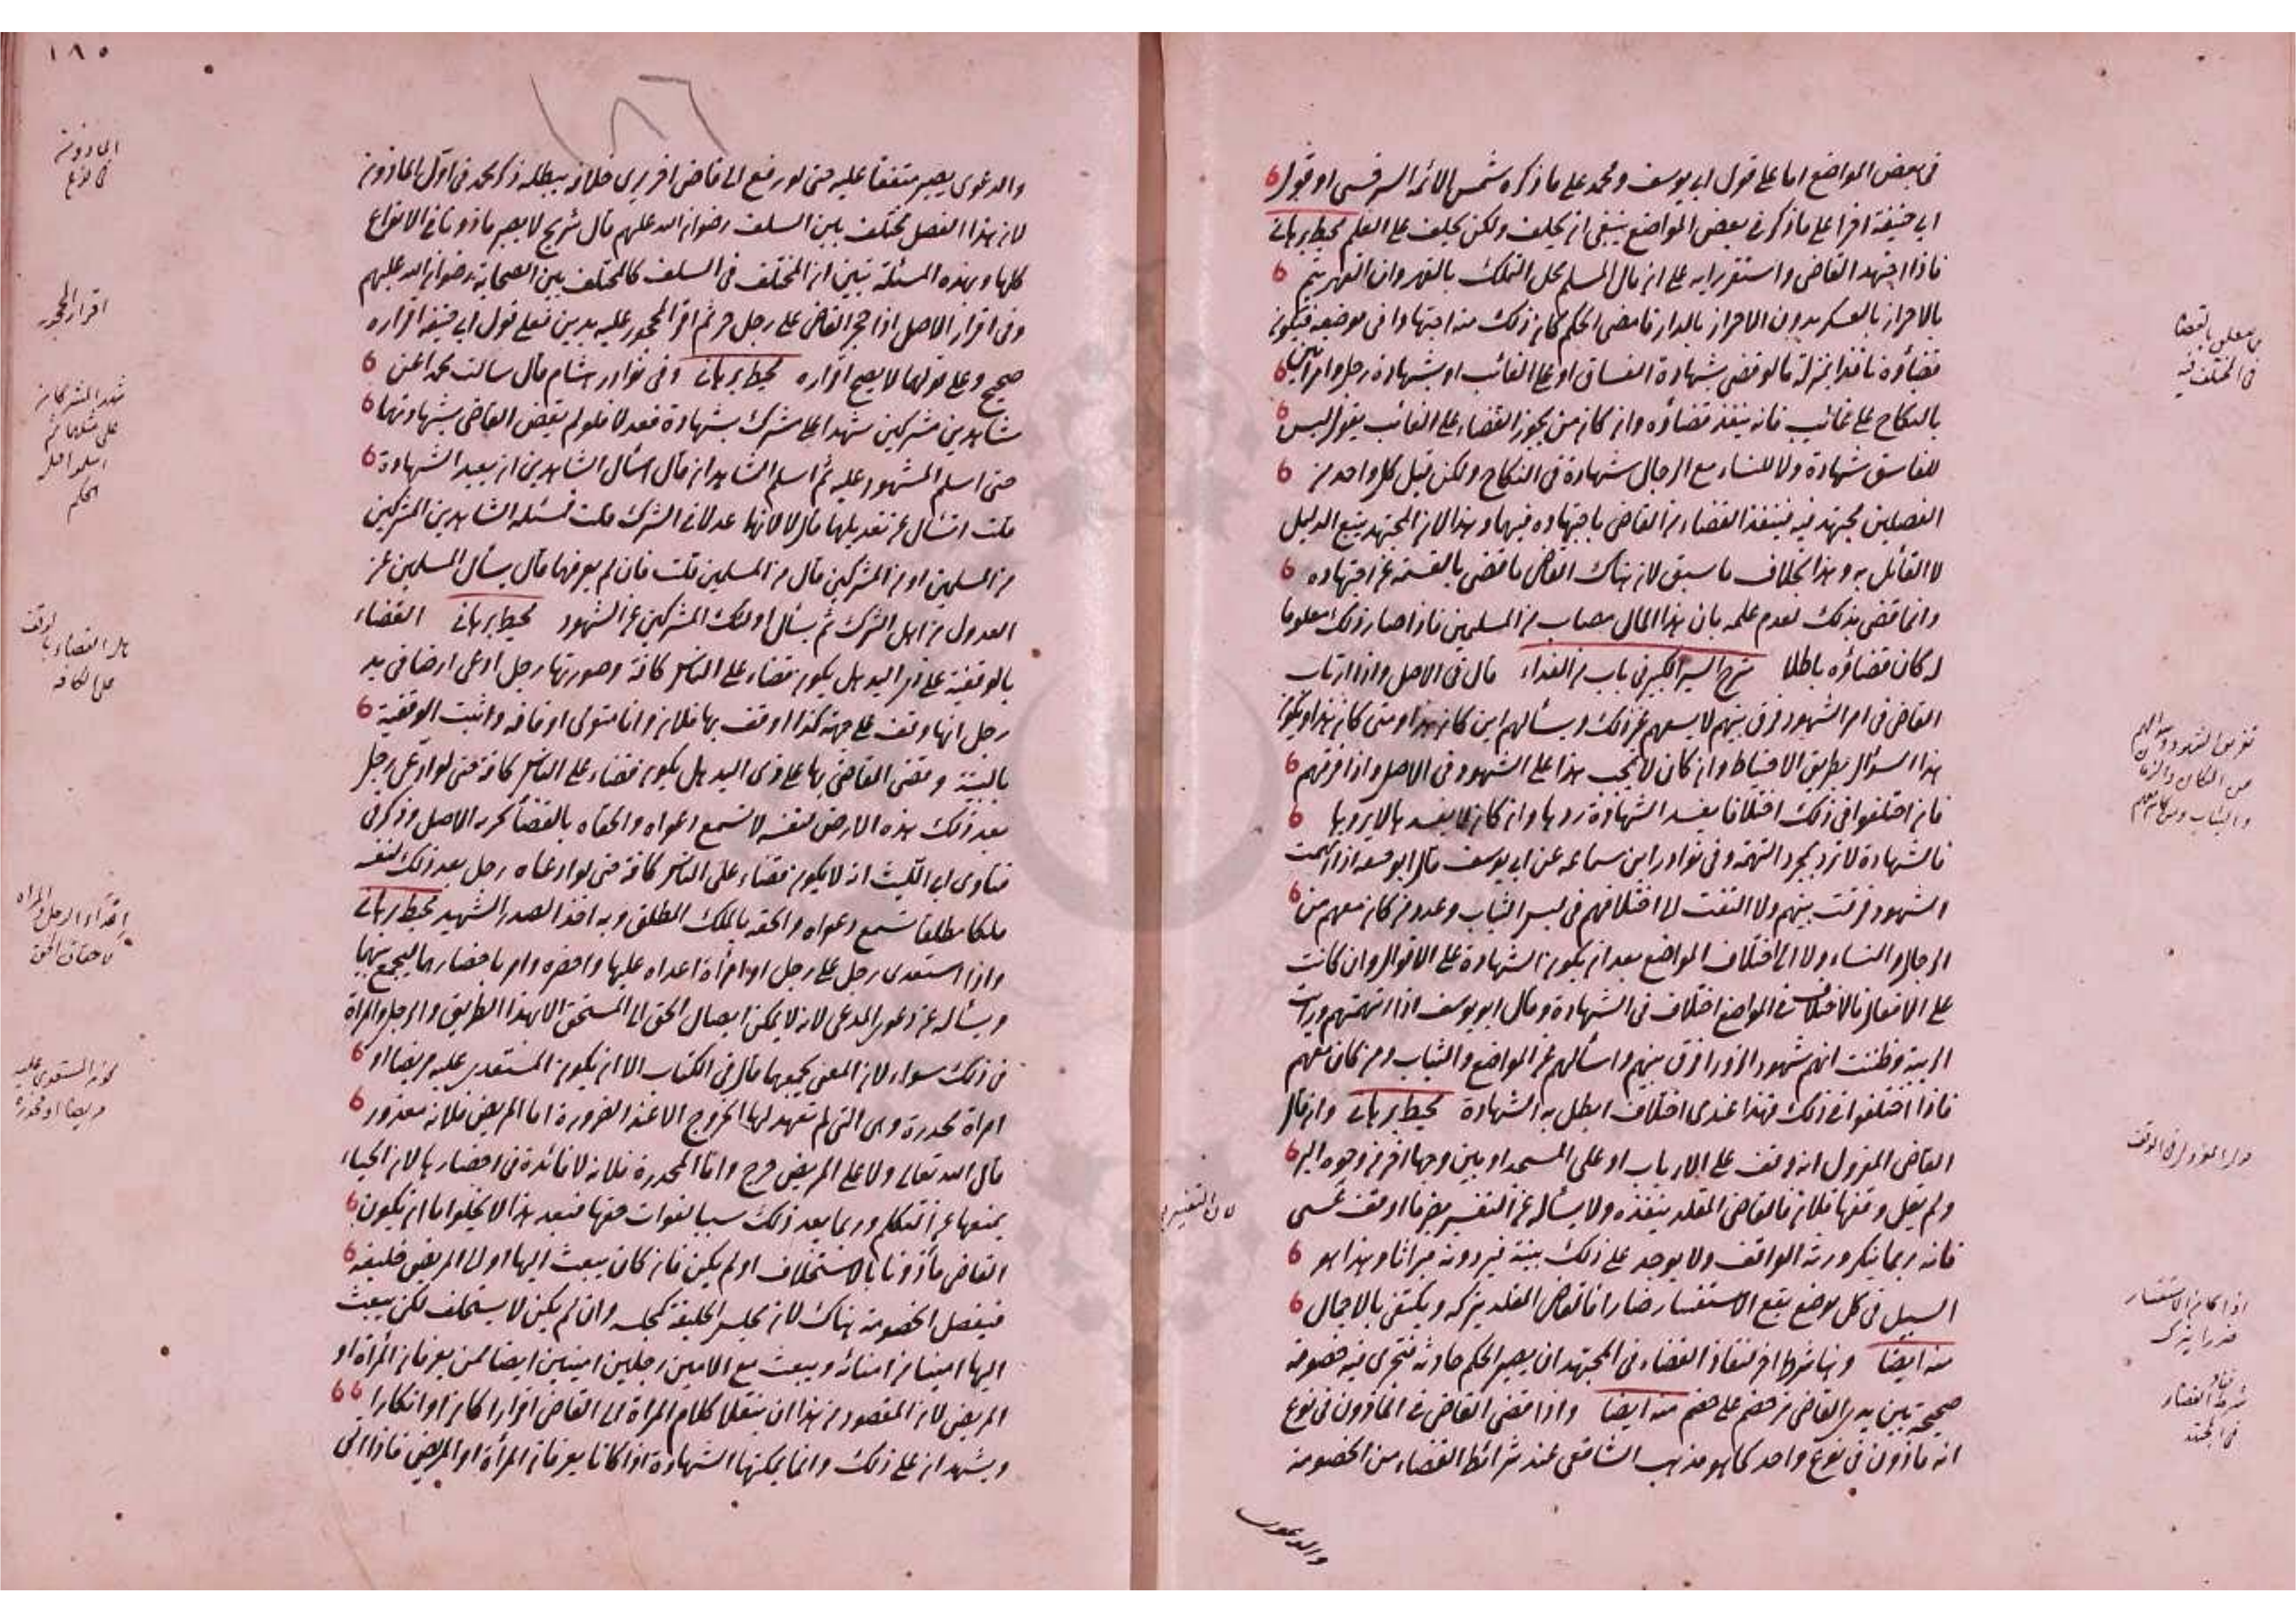 في بعض المواضع اما على قول ابي يوسف ومحمد على ما ذكره شمس الائمة السرخسي او قول
ابي حنيفة اخرا على ما ذكر في بعض المواضع ينبغي ان يحلف ولكن يحلف على العلم محيط برهاني
فاذا اجتهد القاضي واستقر رايه على ان مال المسلم محل التملك بالقهر وان القهر يتم
بالاحراز بالعسكر بدون الاحراز بالدار فامضى الحكم كان ذلك منه اجتهادا في موضعه فيكون
قضاؤه نافذا بمنزلة ما لو قضى بشهادة الفساق او على الغائب او بشهادة رجل وامراتين
بالنكاح على غائب فانه ينفذ قضاؤه وان كان من يجوز القضاء على الغائب يقول ليس
للفاسق شهادة ولا للنساء مع الرجال شهادة في النكاح ولكن قيل كل واحد من
الفصلين مجتهد فيه فينفذ القضاء من القاضي باجتهاده فيهما وهذا لان المجتهد يتبع الدليل
لا القائل به وهذا بخلاف ما سبق لان هناك القاضي ما قضى بالقسمة عن اجتهاده
وانما قضى بذلك لعدم علمه بان هذا المال مصاب من المسلمين فاذا صار ذلك معلوما
له كان قضاؤه باطلا شرح السير الكبير في باب من الفداء قال في الاصل واذا ارتاب
القاضي في امر الشهود فرق بينهم لا يسعهم غير ذلك ويسألهم اين كان هذا ومتى كان هذا ويكون
هذا السؤال بطريق الاحتياط وان كان لا يجب هذا على الشهود في الاصل واذا فرقهم
فان اختلفوا في ذلك اختلافا يفسد الشهادة ردها وان كان لا يفسدها لا يردها
فالشهادة لا ترد بمجرد التهمة وفي نوادر ابن سماعة عن ابي يوسف قال ابو حنيفة اذا اتهمت
الشهود فرقت بينهم ولا التفت الى اختلافهم في لبس الثياب وعدد من كان معهم من
الرجال والنساء ولا الى اختلاف المواضع بعد ان يكون الشهادة على الاقوال وان كانت
على الافعال فالاختلاف في المواضع اختلاف في الشهادة وقال ابو يوسف اذا اتهمتهم ورايت
الريبة وظننت انهم شهود الزور افرق بينهم واسألهم عن المواضع والثياب ومن كان معهم
فاذا اختلفوا في ذلك فهذا عندي اختلاف ابطل به الشهادة محيط برهاني وان قال
القاضي المعزول انه وقف على الارباب او على المسجد او بين وجها اخر من وجوه البر
ولم يقل وقفها فلان فالقاضي المقلد ينفذه ولا يسأله عن التفسير
فانه ربما ينكر ورثة الواقف ولا يوجد على ذلك بينة فيردونه ميراثا وهذا هو
السبيل في كل موضع يقع الاستفسار ضارا فالقاضي المقلد يتركه ويكتفي بالاجمال
منه ايضا وهنا شرط اخر لنفاذ القضاء في المجتهد ان يصير الحكم حادثة فتجري فيه خصومة
صحيحة بين يدي القاضي من خصم على خصم منه ايضا واذا قضى القاضي في الماذون في نوع
انه ماذون في نوع واحد كما هو مذهب الشافعي عند شرائط القضاء من الخصومة
والدعوى
في المختلف فيه
تفريق الشهود وسؤالهم
عن المكان والزمان
والثياب ومن كان معهم
لان التفسير
اذا كان الاستفسار
ضررا يترك
شرط نفاذ القضاء
في المجتهد
١٨٥
١٨٦
والدعوى يصير متفقا عليه حتى لو رفع الى قاضي اخر يرى خلافه يبطله ذكر محمد في اول الماذون
لان هذا الفصل مختلف بين السلف رضوان الله عليهم قال شريح لا يصير ماذونا في الانواع
كلها وبهذه المسئلة تبين ان المختلف في السلف كالمختلف بين الصحابة رضوان الله عليهم
وفي اقرار الاصل اذا حجر القاضي على رجل حر ثم اقر المحجور عليه بدين فعلى قول ابي حنيفة اقراره
صحيح وعلى قولهما لا يصح اقراره محيط برهاني وفي نوادر هشام قال سالت محمدا عن
شاهدين مشركين شهدا على مشرك بشهادة فعدلا فلو لم يقض القاضي بشهادتهما
حتى اسلم المشهود عليه ثم اسلم الشاهدان قال اسأل الشاهدين ان يعيد الشهادة
قلت اتسأل عن تعديلهما قال لا لانهما عدلا في الشرك قلت فمسئلة الشاهدين المشركين
من المسلمين او من المشركين قال من المسلمين قلت فان لم يعرفهما قال يسأل المسلمين عن
العدول من اهل الشرك ثم يسأل اولئك المشركين عن الشهود محيط برهاني القضاء
بالوقفية على ذي اليد هل يكون قضاء على الناس كافة وصورتها رجل ادعى ارضا في يد
رجل انها وقف على جهة كذا اوقف بها فلان وانا متولى اوقافه واثبت الوقفية
بالبينة وقضى القاضي بها على ذي اليد هل يكون قضاء على الناس كافة حتى لو ادعى رجل
بعد ذلك هذه الارض لنفسه لا تسمع دعواه والحقاه بالقضاء بحرية الاصل وذكر في
فتاوى ابي الليث انه لا يكون قضاء على الناس كافة حتى لو ادعاه رجل بعد ذلك لنفسه
ملكا مطلقا تسمع دعواه والحقه بالملك المطلق وبه اخذ الصدر الشهيد محيط برهاني
واذا استعدى رجل على رجل او امرأة اعداه عليها واحضره وامر باحضارهما ليجمع بينهما
ويسأله عن دعوى المدعي لانه لا يمكن ايصال الحق الى المستحق الا بهذا الطريق والرجل والمراة
في ذلك سواء لان المعنى يجمعهما قال في الكتاب الا ان يكون المستعدى عليه مريضا او
امراة مخدرة وهي التي لم تعهد لها الخروج الا عند الضرورة اما المريض فلانه معذور
قال الله تعالى ولا على المريض حرج واما المخدرة فلانه لا فائدة في احضارها لان الحياء
يمنعها عن التكلم وربما يعد ذلك سببا لفوات حقها فبعد هذا لا يخلوا اما ان يكون
القاضي مأذونا بالاستخلاف او لم يكن فان كان يبعث اليها او الى المريض خليفة
فيفصل الخصومة هناك لان مجلس الخليفة كمجلسه وان لم يكن لا يستخلف لكن يبعث
اليها امينا من امنائه ويبعث مع الامين رجلين امينين ايضا ممن يعرفان المرأة او
المريض لان المقصود من هذا ان ينقلا كلام المراة الى القاضي اقرارا كان او انكارا
ويشهدان على ذلك وانما يمكنهما الشهادة اذا كانا يعرفان المرأة او المريض فاذا اتى
الماذون
في نوع
اقرار المحجور
شهد المشركان
على مثلهما ثم
اسلموا قبل
الحكم
هل القضاء بالوقف
على الكافة
لاحقاق الحق
كون المستعدى عليه
مريضا او مخدرة